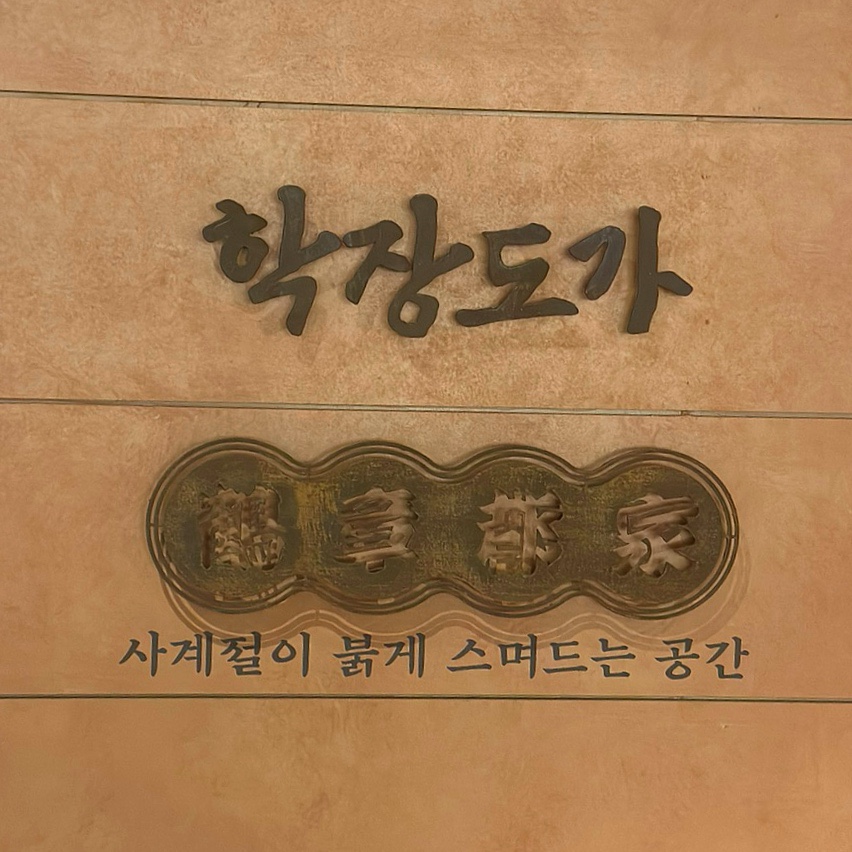 학장도가
鶴章都家
사계절이 붉게 스며드는 공간